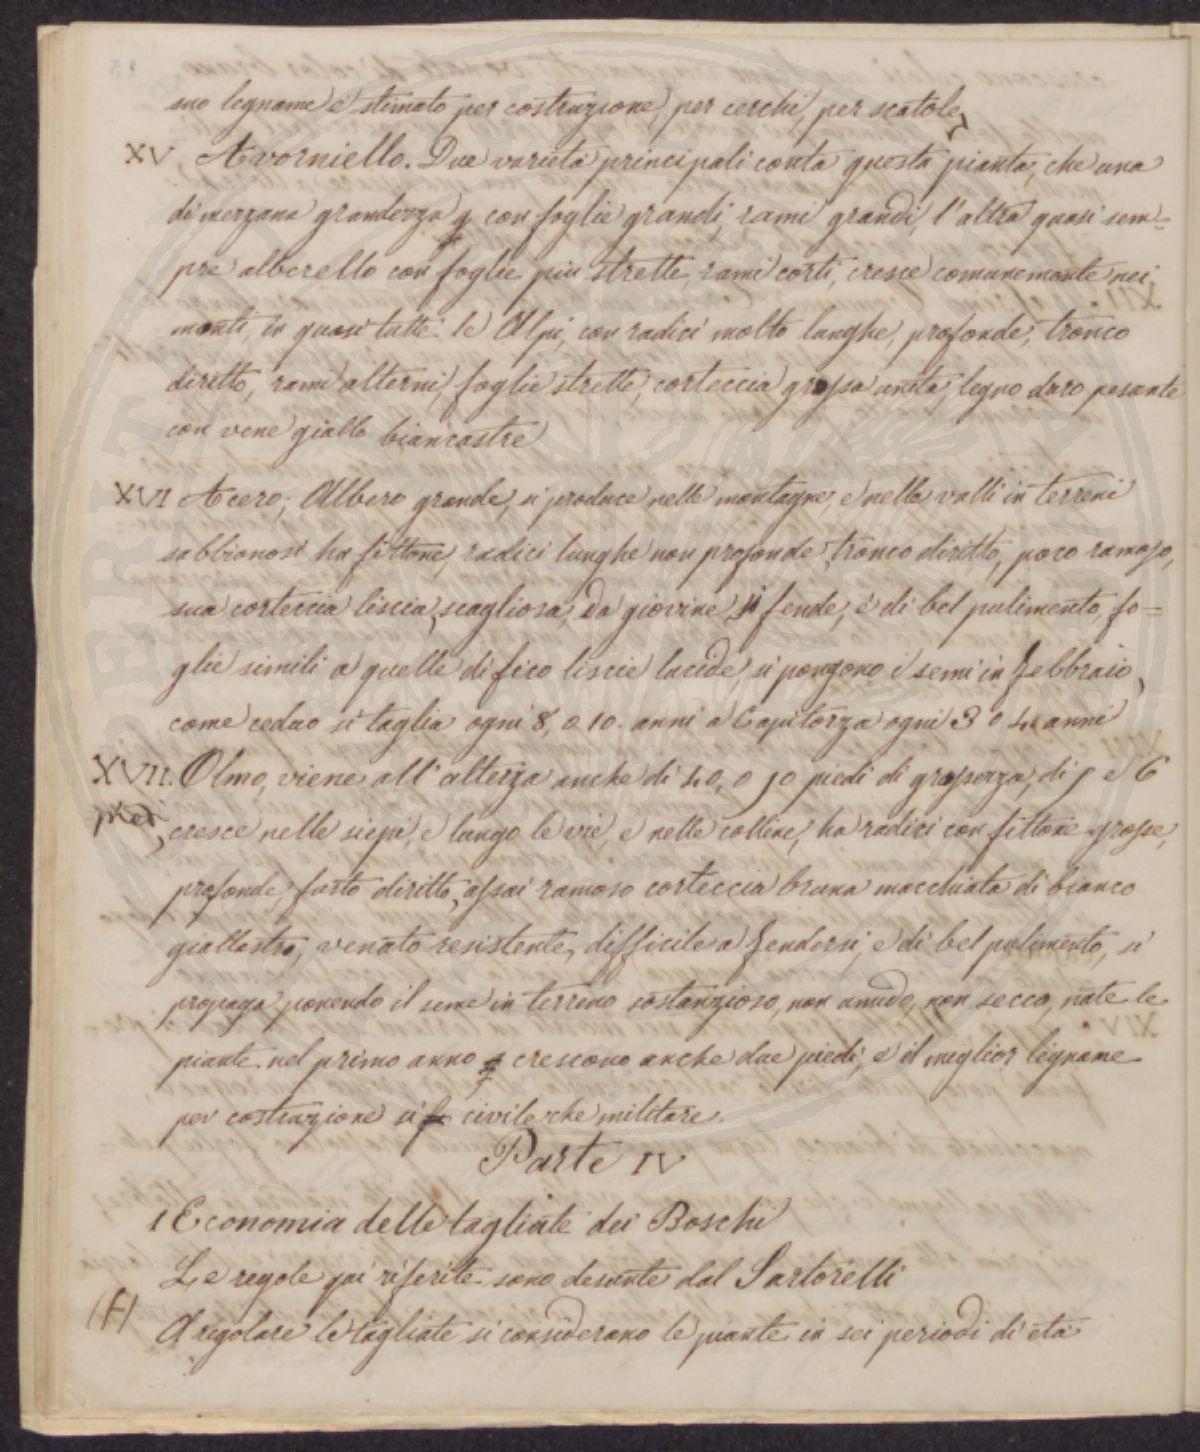 suo legname é stimato per costruzione, per cerchi, per scatole,
XV Avorniello. Due varietà principali conta questa pianta, che una
di mezzana grandezza con foglie grandi, rami grandi, l'altra quasi sem=
pre alberello con foglie piu strette, rami corti, cresce comunemente nei
monti, in quasi tutte le Alpi, con radici molto lunghe, profonde, tronco
diritto, rami alterni, foglie strette, corteccia grossa unita, legno duro pesante
con vene giallo biancastre
XVI Acero; Albero grande, si produce nelle montagne, e nelle valli in terreni
sabbionosi ha fittone, radici lunghe non profonde, tronco diritto, poco ramoso,
sua corteccia liscia, scagliosa, da giovine si fende, é di bel pulimento, fo=
glie simili a quelle di fico liscie lucide, si pongono i semi in Febbraio,
come ceduo si taglia ogni 8, o 10. anni a Capitozza ogni 3 o 4 anni
XVII. Olmo, viene all'altezza anche di 40, o 50 piedi di grossezza, di 5 e 6
piedi, cresce nelle siepi, e lungo le vie, e nelle colline, ha radici con fittone grosse,
profonde, fusto diritto, assai ramoso corteccia bruna macchiata di bianco
giallastro, venato resistente, difficile a fendersi, e di bel pulimento, si
propaga ponendo il seme in terreno sostanzioso, non umido, non secco, nate le
piante nel primo anno crescono anche due piedi, é il miglior legname
per costruzione si civile che militare.
Parte IV
1 Economia delle tagliate dei Boschi
Le regole qui riferite sono desunte dal Sartorelli
(f) A regolare le tagliate si considerano le piante in sei periodi di età